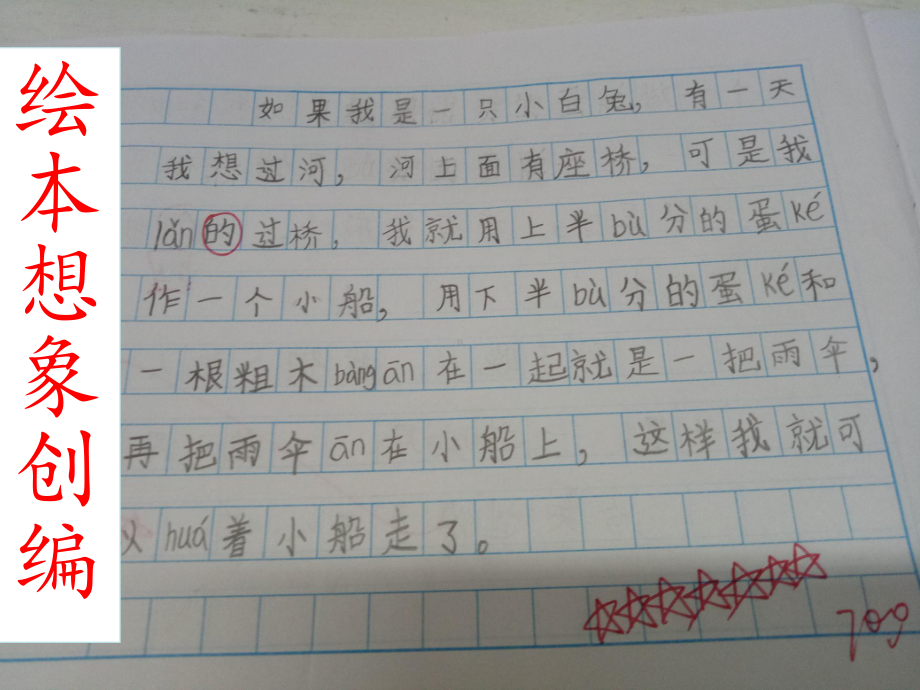 绘本想象创编
如果我是一只小白兔，有一天
我想过河，河上面有座桥，可是我
lǎn的过桥，我就用上半bù分的蛋ké
作一个小船，用下半bù分的蛋ké和
一根粗木bàngān在一起就是一把雨伞，
再把雨伞ān在小船上，这样我就可
以huá着小船走了。